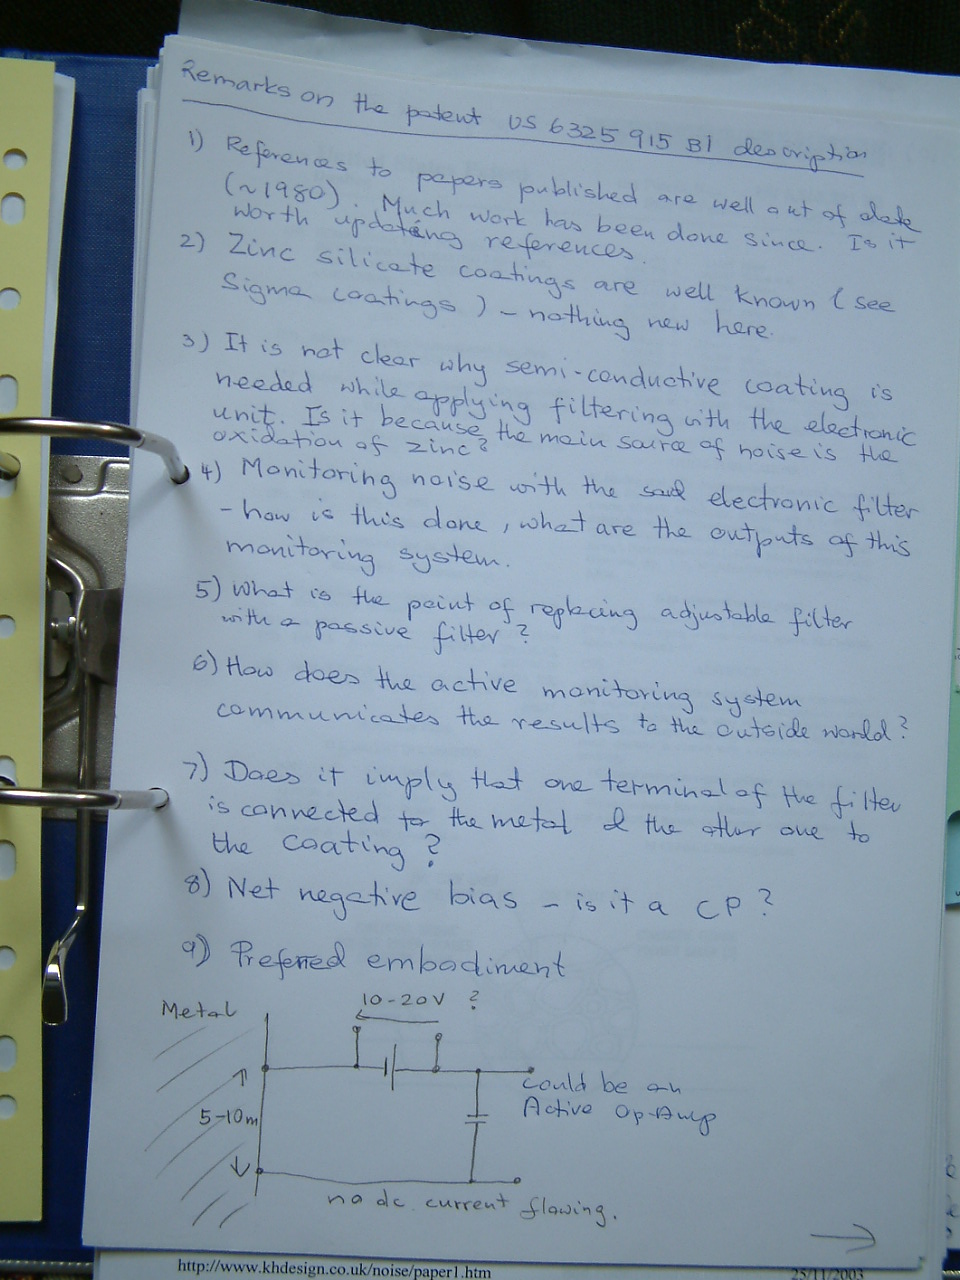 Remarks on the patent US 6325 915 B1 description
1) References to papers published are well out of date
(~1980). Much work has been done since. Is it
worth updating references.
2) Zinc silicate coatings are well known (see
Sigma coatings) - nothing new here.
3) It is not clear why semi-conductive coating is
needed while applying filtering with the electronic
unit. Is it because the main source of noise is the
oxidation of zinc?
4) Monitoring noise with the said electronic filter
- how is this done, what are the outputs of this
monitoring system.
5) What is the point of replacing adjustable filter
with a passive filter?
6) How does the active monitoring system
communicates the results to the outside world?
7) Does it imply that one terminal of the filter
is connected to the metal & the other one to
the coating?
8) Net negative bias - is it a CP?
9) Preferred embodiment
10-20V ?
Metal
could be an
Active Op-Amp
5-10m
no dc current flowing.
http://www.khdesign.co.uk/noise/paper1.htm
25/11/2003